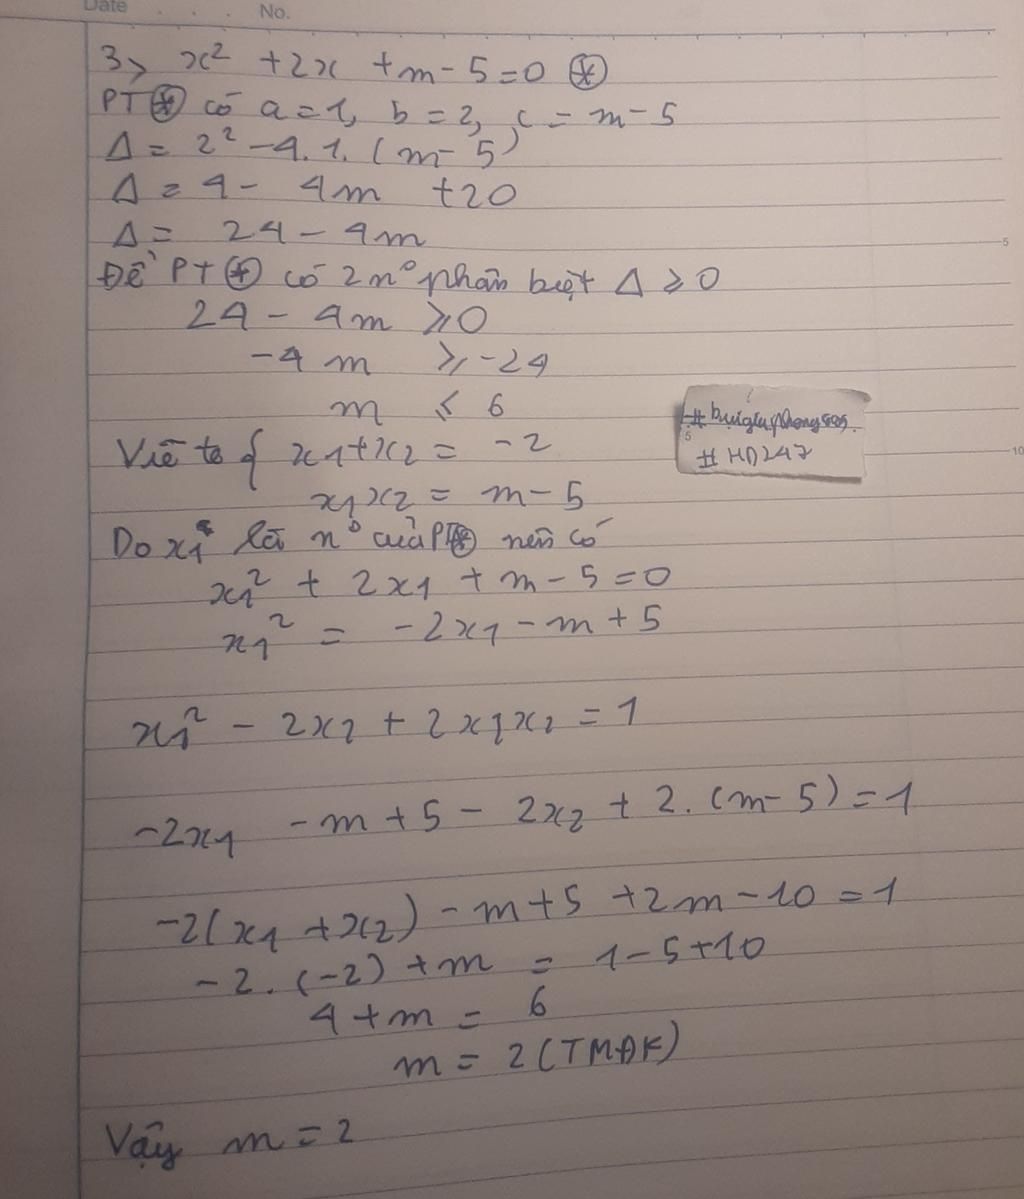 Date . . . No.
3> x² + 2x + m - 5 = 0 (*)
PT (*) có a = 1, b = 2, c = m - 5
Δ = 2² - 4.1.(m - 5)
Δ = 4 - 4m + 20
Δ = 24 - 4m
Để PT (*) có 2 n° phân biệt Δ ≥ 0
24 - 4m ≥ 0
-4m ≥ -24
m ≤ 6
5
Viè te { x1 + x2 = -2
x1x2 = m - 5
#
5
# HD247
10
Do x1 là n° của PT(*) nên có
x1² + 2x1 + m - 5 = 0
x1² = -2x1 - m + 5
x1² - 2x2 + 2x1x2 = 1
-2x1 - m + 5 - 2x2 + 2.(m - 5) = 1
-2(x1 + x2) - m + 5 + 2m - 10 = 1
-2.(-2) + m = 1 - 5 + 10
4 + m = 6
m = 2 (TMĐK)
Vậy m = 2